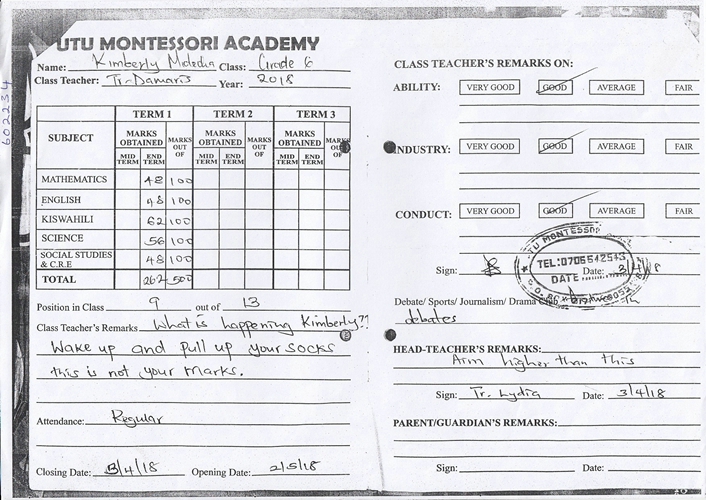 UTU MONTESSORI ACADEMY
Name: Kimberly Class: Grade 6
Class Teacher: Tr. Damaris Year: 2018
602234
TERM 1 TERM 2 TERM 3
SUBJECT MARKS OBTAINED MARKS OUT OF MARKS OBTAINED MARKS OUT OF MARKS OBTAINED MARKS OUT OF
MID TERM END TERM MID TERM END TERM MID TERM END TERM
MATHEMATICS 48 100
ENGLISH 48 100
KISWAHILI 62 100
SCIENCE 56 100
SOCIAL STUDIES & C.R.E 48 100
TOTAL 262 500
Position in Class 9 out of 13
Class Teacher's Remarks What is happening Kimberly??
Wake up and pull up your socks
this is not your marks.
Attendance: Regular
Closing Date: 3/4/18 Opening Date: 2/5/18
CLASS TEACHER'S REMARKS ON:
ABILITY: VERY GOOD GOOD AVERAGE FAIR
INDUSTRY: VERY GOOD GOOD AVERAGE FAIR
CONDUCT: VERY GOOD GOOD AVERAGE FAIR
UTU MONTESSORI
TEL:0706542543
DATE
Sign: Date: 3/4/18
Debate/ Sports/ Journalism/ Drama Club
debates
HEAD-TEACHER'S REMARKS:
Aim higher than this
Sign: Tr. Lydia Date: 3/4/18
PARENT/GUARDIAN'S REMARKS:
Sign: Date: